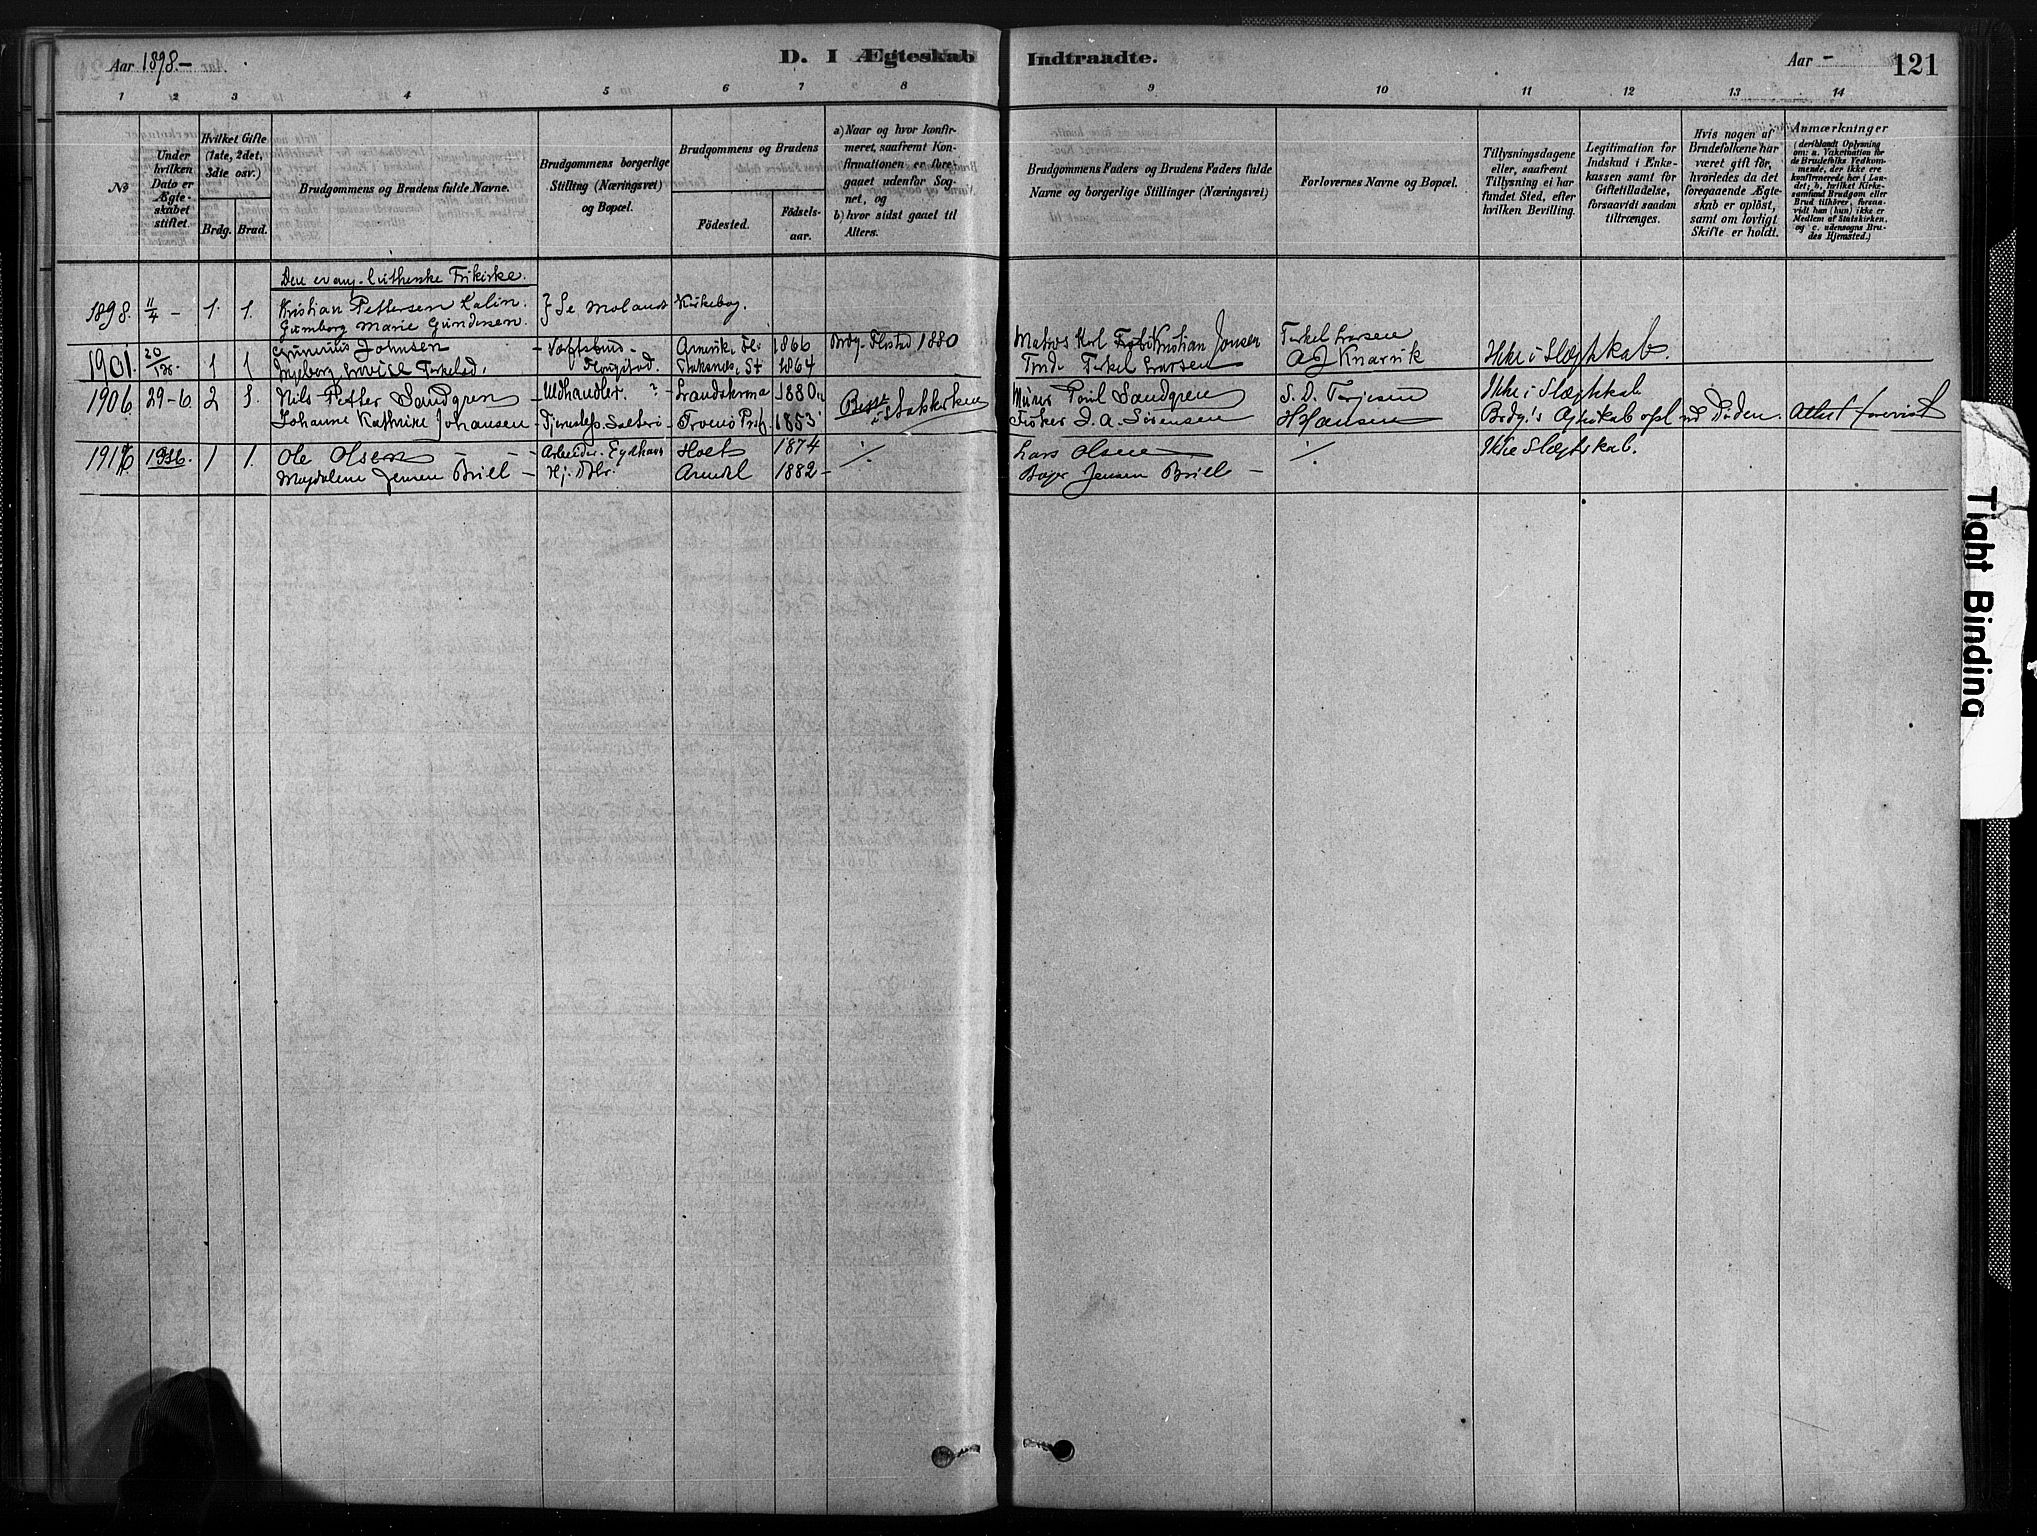 Aar 1898.-
D. I Ægteskab Indtraadte.
Aar -
121
1 2 3 4 5 6 7 8 9 10 11 12 13 14
No
Under hvilken Dato er Ægteskabet stiftet.
Hvilket Gifte (1ste, 2det, 3die osv.)
Brdg. Brud.
Brudgommens og Brudens fulde Navne.
Brudgommens borgerlige Stilling (Næringsvei) og Bopæl.
Brudgommens og Brudens
Fødested.
Fødsels-aar.
a) Naar og hvor konfirmeret, saafremt Konfirmationen er foregaaet udenfor Sognet, og
b) hvor sidst gaaet til Alters.
Brudgommens Faders og Brudens Faders fulde Navne og borgerlige Stillinger (Næringsvei)
Forlovernes Navne og Bopæl.
Tillysningsdagene eller, saafremt Tillysning ei har fundet Sted, efter hvilken Bevilling.
Legitimation for Indskud i Enkekassen samt for Giftetilladelse, forsaavidt saadan tiltrænges.
Hvis nogen af Brudefolkene har været gift før, hvorledes da det foregaaende Ægteskab er opløst, samt om lovligt Skifte er holdt.
Anmærkninger (deriblandt Oplysning om: a. Vakcination for de Brudefolks Vedkommende, der ikke ere konfirmerede her i Landet; b, hvilket Kirkesamfund Brudgom eller Brud tilhører, forsaavidt han (hun) ikke er Medlem af Statskirken, og c. udensogns Brudes Hjemsted.)
Den evang. lutherske Frikirke.
1898. 11/4 - 1. 1. Kristian Pettersen Kalin. } Se Molands Kirkebog.
Gumborg Marie Gundersen.
1901. 20/ 1 1 Johnsen 1866 Brdg. 1880 Matros Karl Kristian Jonsen Terkel Larsen Ikke i Slægtskab.
1864 Terkel Larsen Knarvik
1906. 29-6. 2 Nils Petter Sandgren - Uldhandler ? - Landskrona 1880 Begge i Statskirken Murer Poul Sandgren S. D. Terjesen Ikke i Slægtskab.
Johanne Kathrine Johansen - 1853 Fisker J. A. Sørensen H Hansen Brdg's Ægteskab opl. ved Døden. Attest forevist
1 1. Ole Olsen - Arbeider. Eydehavn Holt 1874 ./. Lars Olsen ./. Ikke Slægtskab.
Magdalene Jensen Brill - Arendal 1882 - Jensen Brill -
Tight Binding